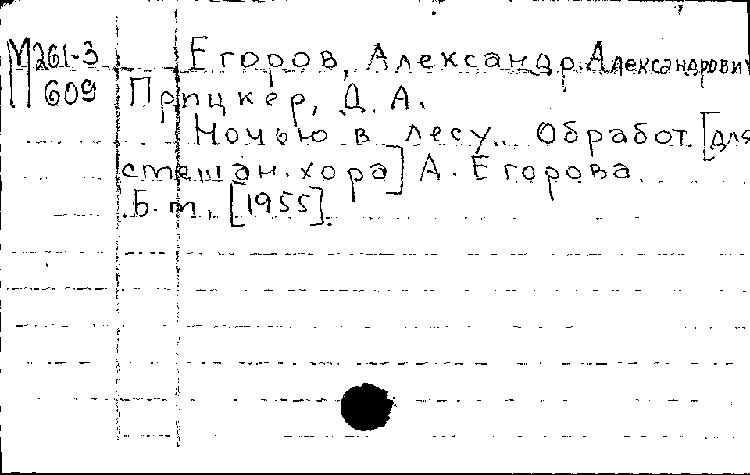 М261-3 Егоров, Александр Александрович
П609 Прицкер, Д. А.
Ночью в лесу. Обработ. [для
смешан. хора] А. Егорова.
Б. м., [1955].